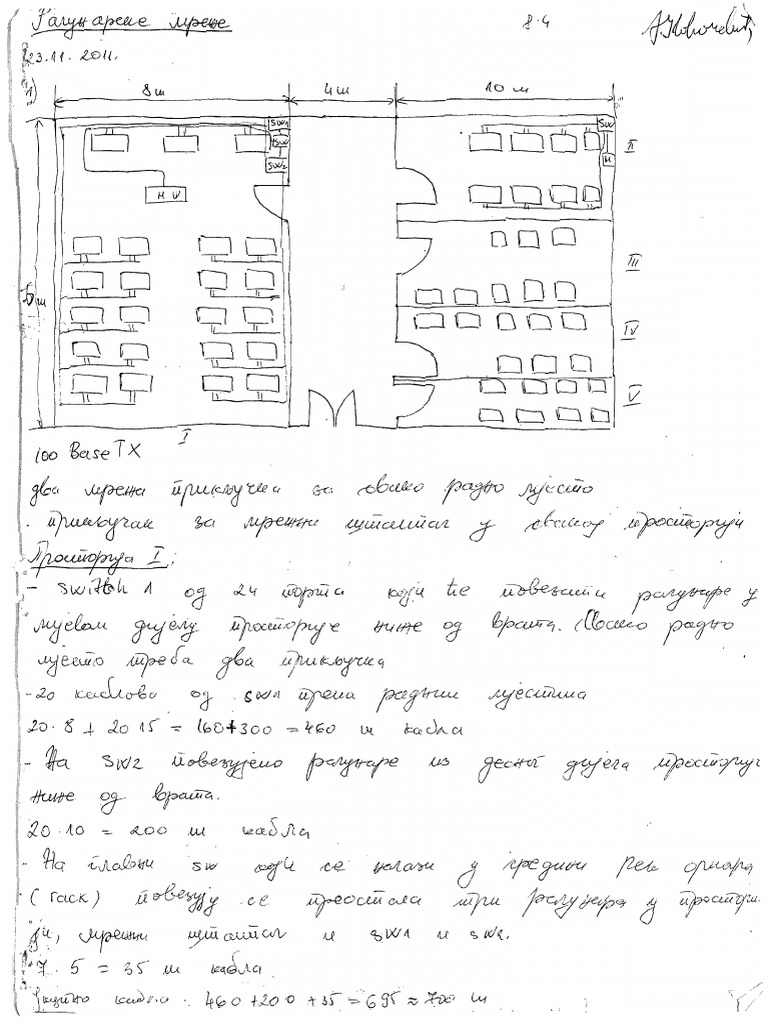 Рачунарске мреже
8.4
23.11. 2011.
1)
8 m
4 m
10 m
SW1
SW
SW2
M. U
SW
M
II
III
IV
V
I
100 Base TX
два мрежна прикључка за свако радно мјесто
. прикључак за мрежни штампач у свакој просторији
Просторија I:
- switch 1 од 24 порта који ће повезати рачунаре у
лијевом дијелу просторије ниже од врата. Свако радно
мјесто треба два прикључка
- 20 каблова од sw1 према радним мјестима
20·8 + 20·15 = 160+300 = 460 m кабла
- На SW2 повезујемо рачунаре из десног дијела просторије
ниже од врата.
20·10 = 200 m кабла
- На главни sw који се налази у средини рек ормара
(rack) повезују се преостала три рачунара у простори-
ји, мрежни штампач и sw1 и sw2.
7·5 = 35 m кабла
Укупно кабла: 460+200+35=695≈700 m